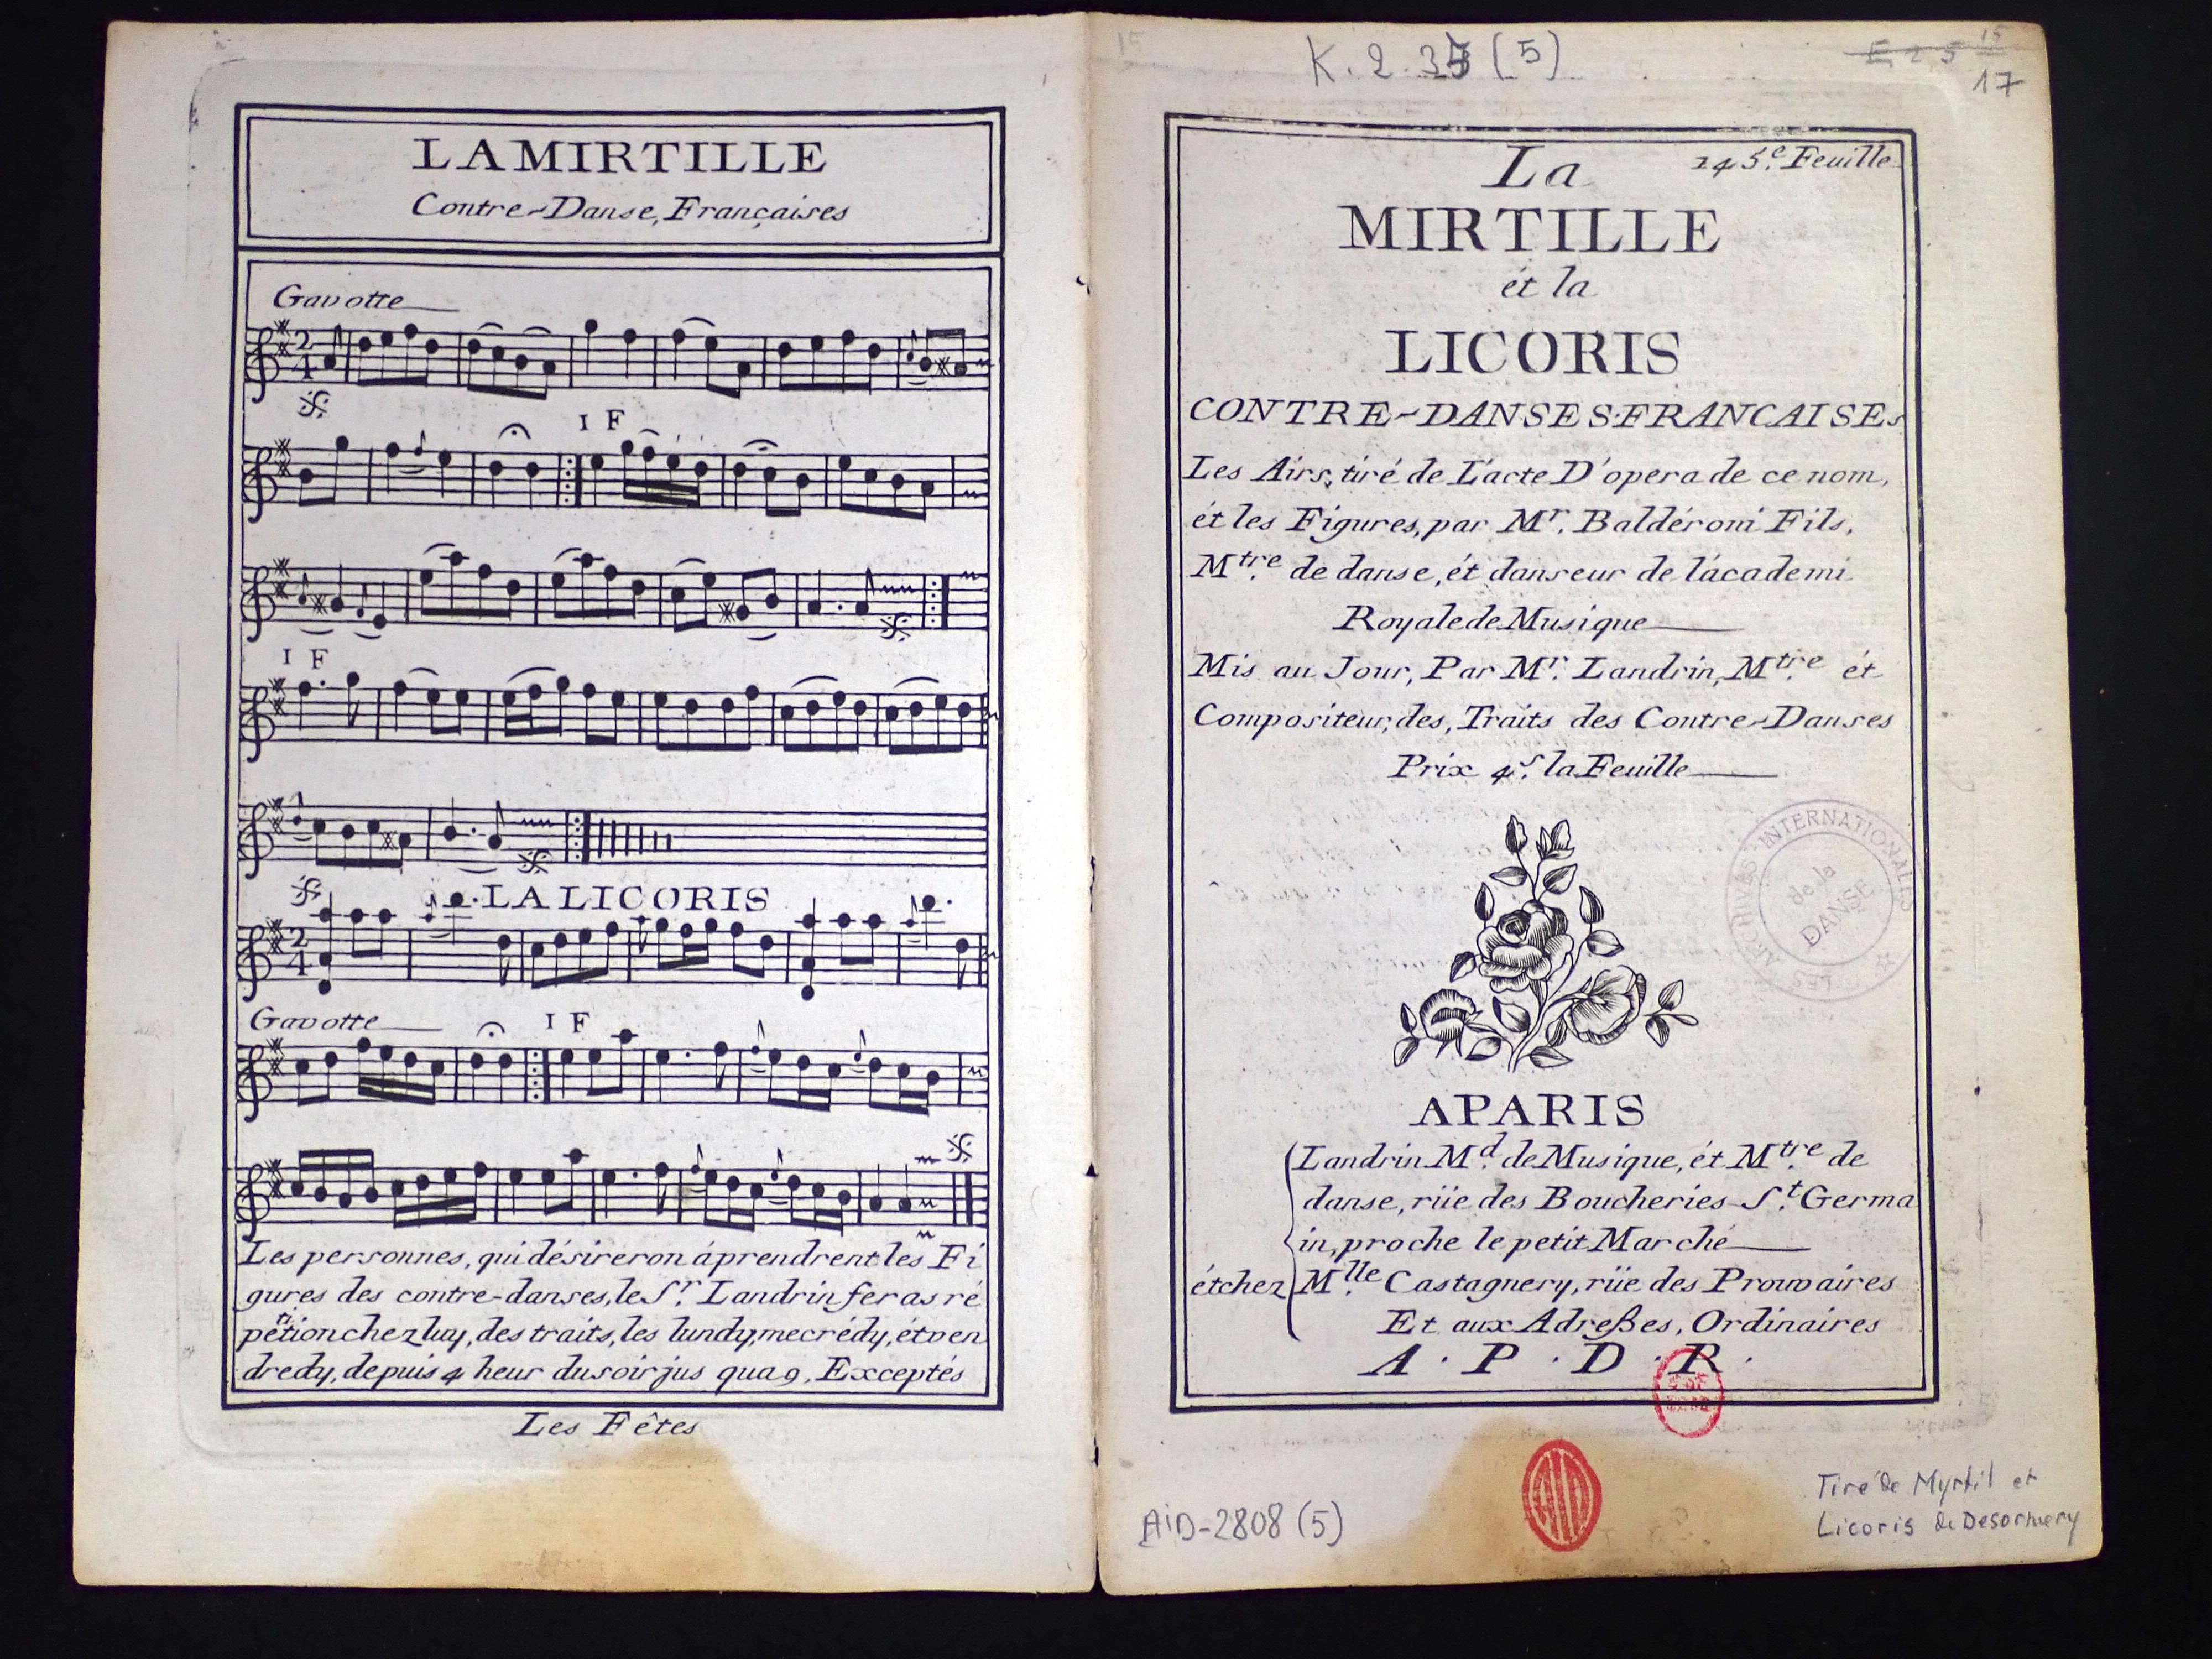 LA MIRTILLE
Contre-Danse, Françaises
Gavotte
2
4
I F
I F
LA LICORIS
2
4
Gavotte
I F
Les personnes, qui désireron áprendrent les Fi
gures des contre-danses, le Sr. Landrin feras ré
pétition chez luy, des traits, les lundy, mecrédy, ét ven
dredy, depuis 4 heur du soir jus qua 9, Exceptés
Les Fêtes
15
K. 2. 35 (5)
E 2 5 15
17
145e. Feuille
La
MIRTILLE
ét la
LICORIS
CONTRE-DANSES FRANCAISES
Les Airs, tiré de L'acte D'opera de ce nom,
ét les Figures, par Mr. Baldéroni Fils,
Mtre. de danse, ét danseur de l'academi
Royale de Musique
Mis au Jour, Par Mr. Landrin, Mtre. ét
Compositeur, des, Traits des Contre-Danses
Prix 4s. la Feuille
LES ARCHIVES INTERNATIONALES
de la
DANSE
A PARIS
Landrin Md. de Musique, ét Mtre. de
danse, rüe des Boucheries St. Germa
in, proche le petit Marché
ét chez Mlle. Castagnery, rüe des Prouvaires
Et aux Adreßes, Ordinaires
A . P . D . R .
AID
AID-2808 (5)
Tiré de Myrtil et
Licoris de Desormery